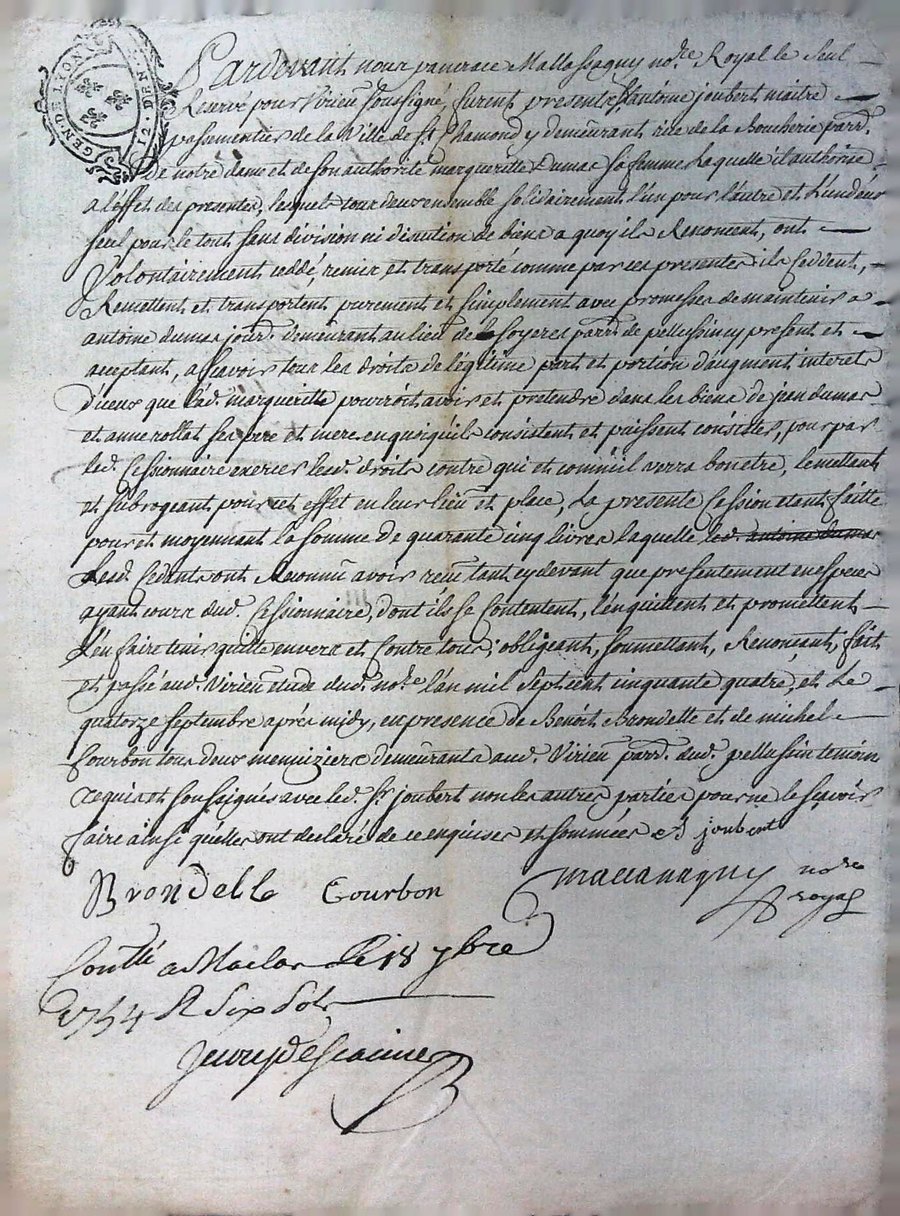 GEN DE LYON
12 DEN
Pardevant nous pancrace Mallassagny no.re Royal le Seul
Reservé pour Virieu soussigné, furent presents Sr antoine joubert maitre
passementier de la Ville de St. Chamond y demeurant rüe de la Boucherie parr.
De notre dame et de son authorité margueritte Dumas sa femme Laquelle il authorise
a l'effet des presentes, lesquels tous deux ensemble solidairement l'un pour l'autre et L'un d'eux
seul pour le tout sans division ni discution de biens a quoy ils Renoncent, ont
Volontairement ceddé, remis et transporté comme par ces presentes ils Cedent,
Remettent et transportent purement et simplement avec promesses de maintenir a
antoine dumas jour. demeurant au lieu de soyeres parr. de pellussincy present et
acceptant, asscavoir tous les droits de legitime part et portion d'augment interets
d'iceux que lad. margueritte pourroit avoir et pretendre dans les biens de jean dumas
et anne rollat ses pere et mere en quoiqu'ils consistent et puissent consister, pour par
led. Cessionnaire exercer lesd. droits contre qui et comme il verra bon etre, le mettant
et subrogeant pour cet effet en leur lieu et place, La presente Cession etant faitte
pour et moyennant la somme de quarante cinq livres laquelle led. antoine dumas
Lesd. Cedants ont Reconnu avoir reçu tant cy devant que presentement en especes
ayant cours dud. Cessionnaire, dont ils se Contentent, l'en quittent et promettent
L'en faire tenir quitte envers et Contre tous; obligeant, soumettant, Renonçant, fait
et passé aud. Virieu etude dud. no.re l'an mil sept cent cinquante quatre, et Le
quatorze septembre après midy, en presence de Benoit Brondelle et de michel
Courbon tous deux menuiziers demeurants aud. Virieu parr. dud. pellussin temoins
requis et soussignés avec led. Sr. joubert non les autres parties pour ne le sçavoir
faire ainsi qu'elles ont declaré de ce enquises et sommées joubert
Brondelle Courbon Mallassagny no.re
royal
Conllé a Maclas Le 18 7bre
1754 R Six Sols